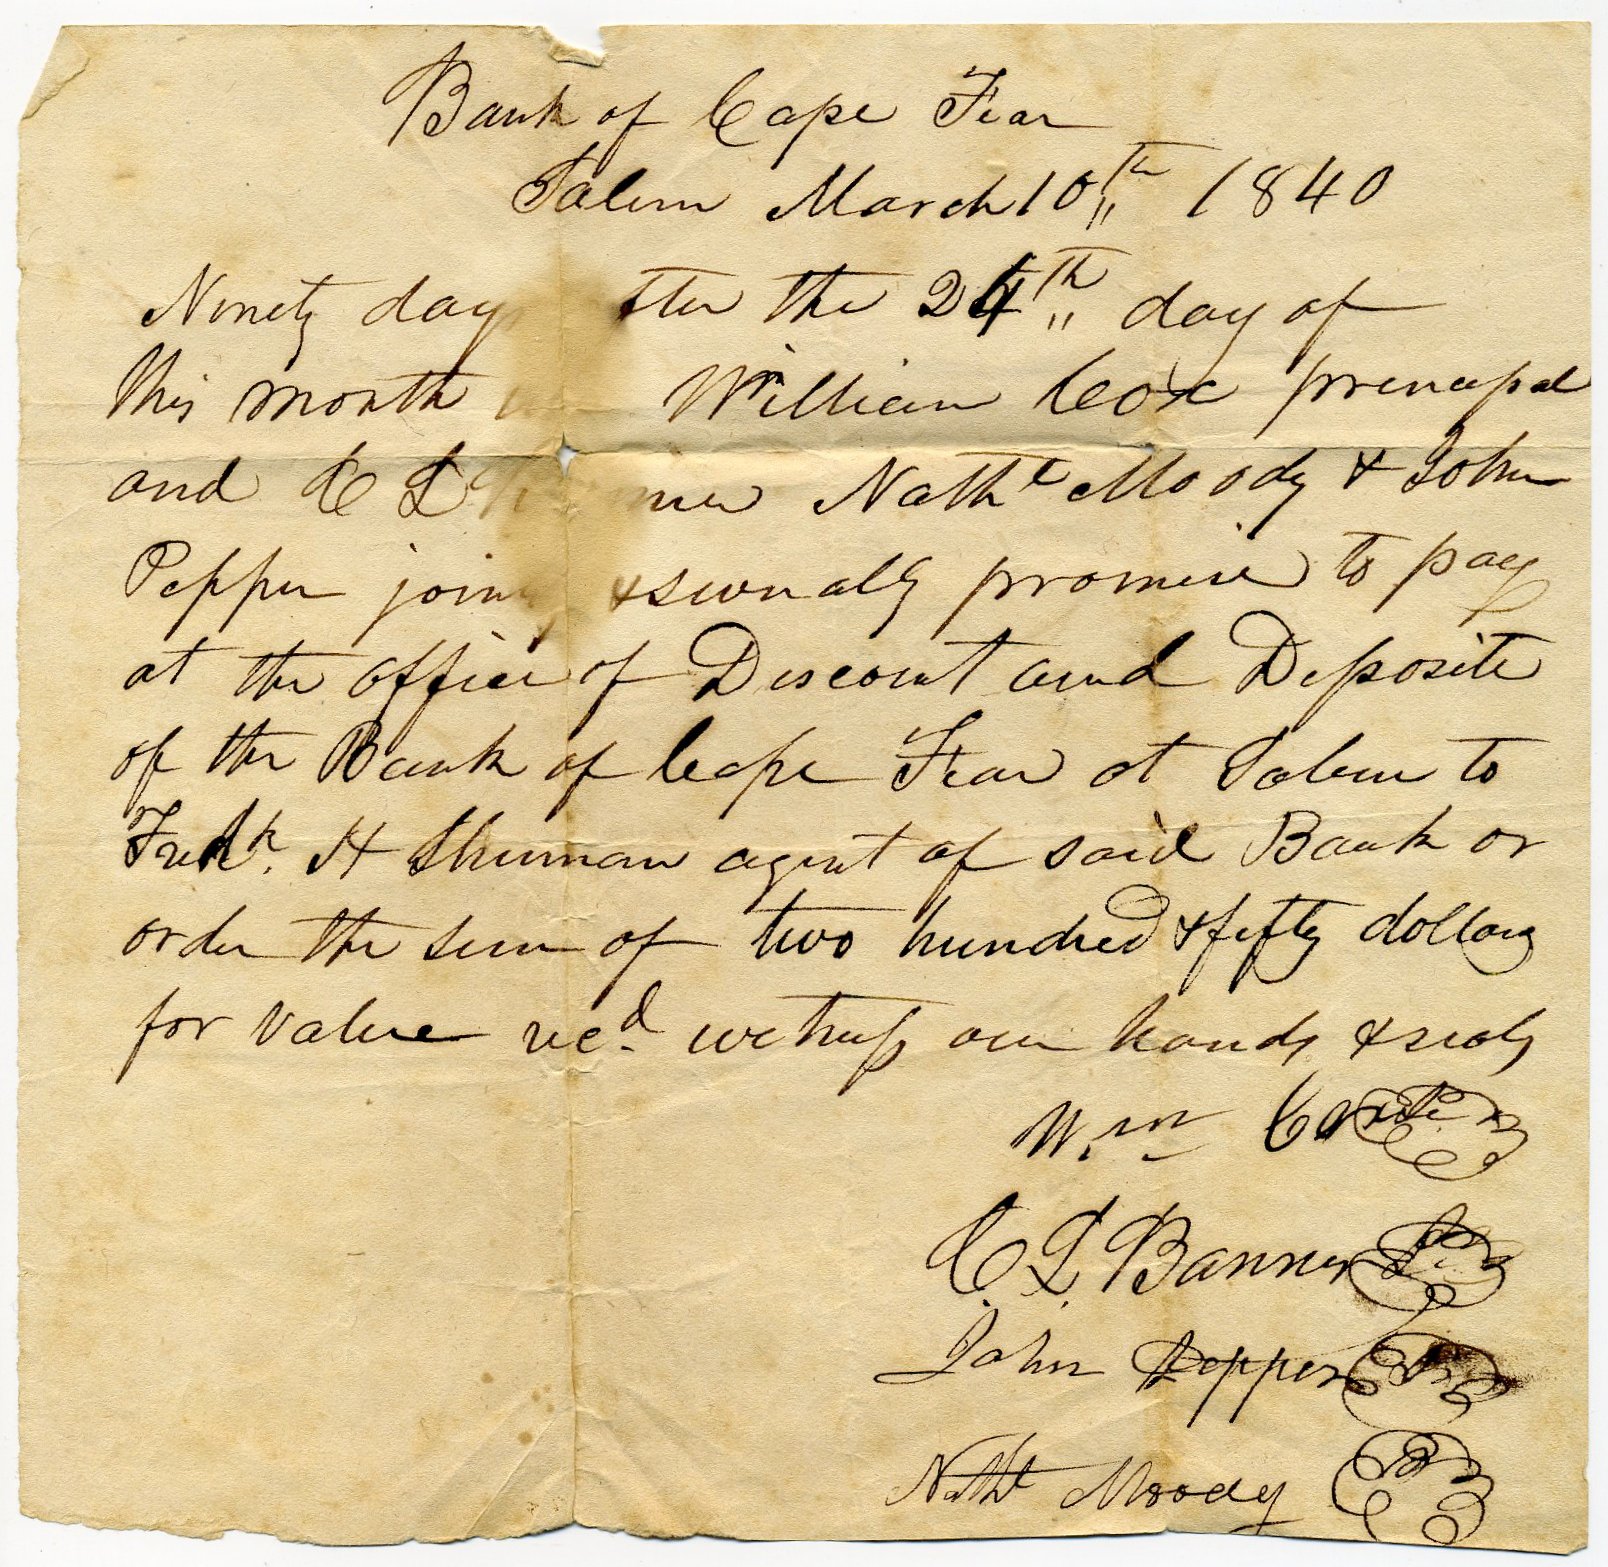 Bank of Cape Fear
Salem March 10th 1840
Ninety days after the 24th day of
this month we William Cox principal
and C L Banner Nathl Moody & John
Pepper jointly & severally promise to pay
at the office of Discount and Deposite
of the Bank of Cape Fear at Salem to
Fredk. H Shuman agent of said Bank or
order the sum of two hundred & fifty dollars
for value recd. witness our hands & seals
Wm Cox
C. L. Banner
John Pepper
Nathl Moody